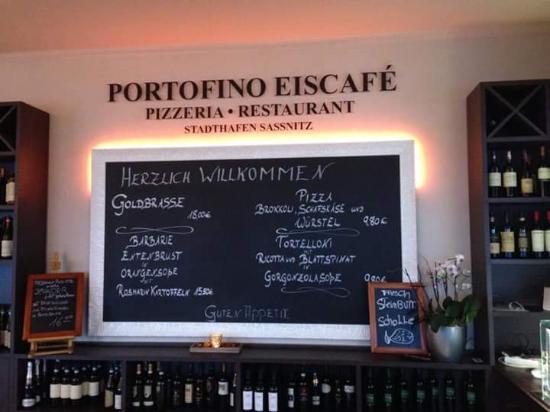 PORTOFINO EISCAFÉ
PIZZERIA • RESTAURANT
STADTHAFEN SASSNITZ
HERZLICH WILLKOMMEN
GOLDBRASSE
18.00€
BARBARIE
ENTENBRUST
in
ORANGENSOßE
MIT
ROSMARIN KARTOFFELN 15.80€
PIZZA
BROKKOLI, SCHAFSKÄSE UND
WÜRSTEL 9.80€
TORTELLONI
mit
RICOTTA UND BLATTSPINAT
in
GORGONZOLASOßE 9.80€
GUTEN APPETIT
FRISCH
STEINBUTT
SCHOLLE